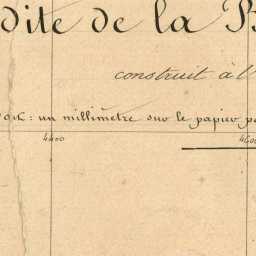 dite de la B
construit à l'
: un millimètre sur le papier p
4400